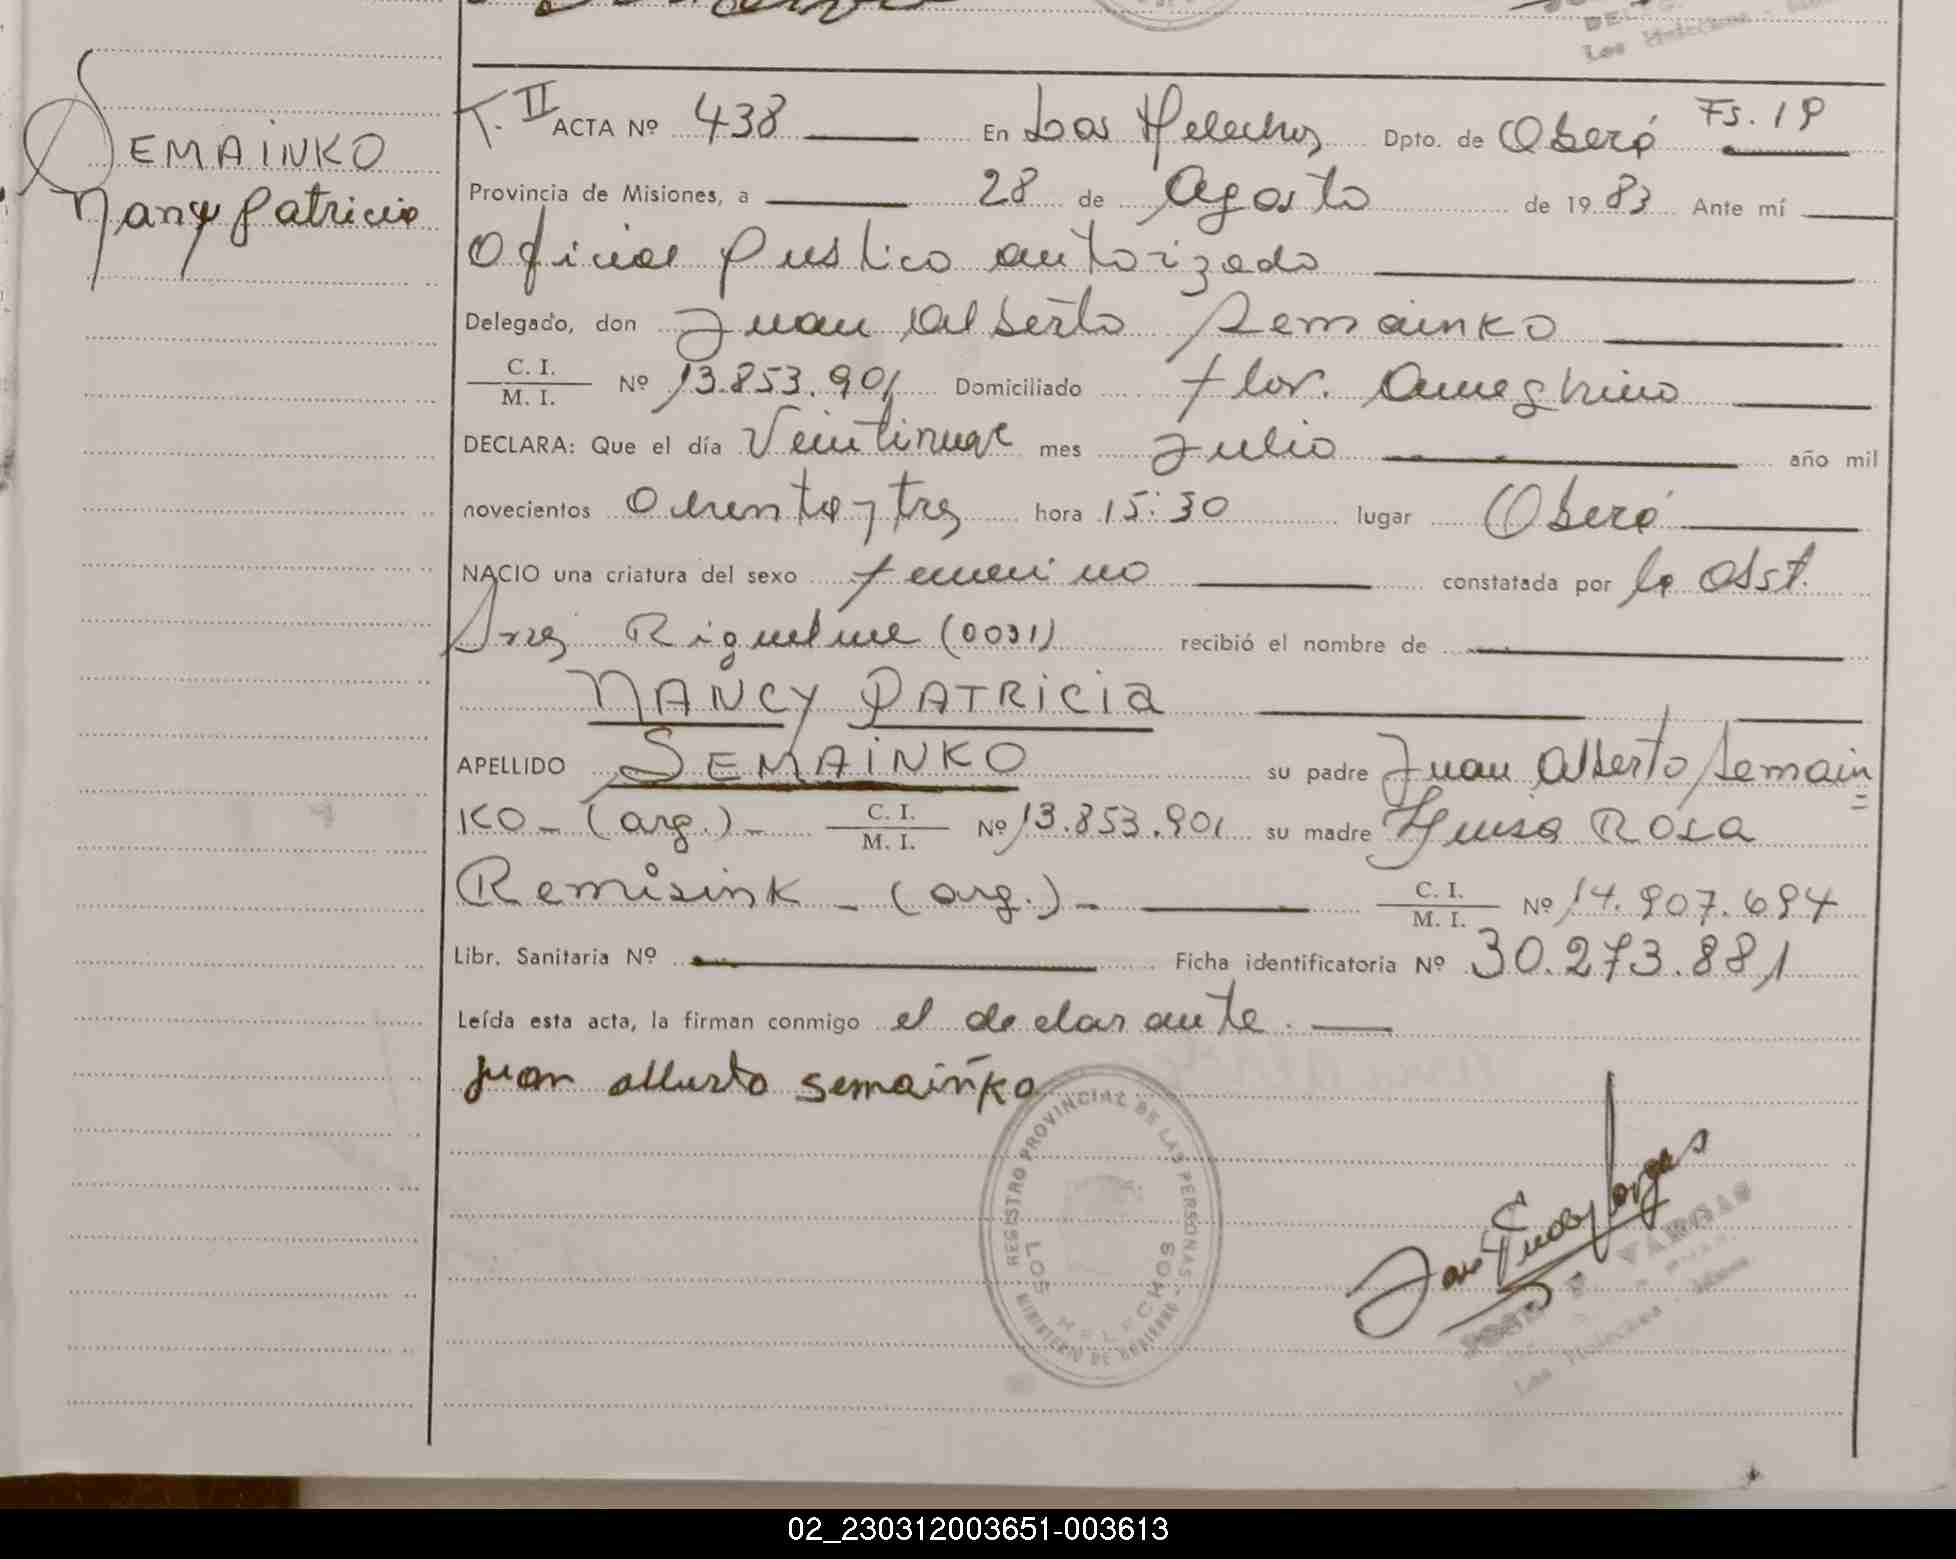 T. II ACTA Nº 438 En Los Helechos Dpto. de Oberá Fs. 19
SEMAINKO
Nancy Patricia
Provincia de Misiones, a 28 de Agosto de 1983 Ante mí
Oficial Publico autorizado
Delegado, don Juan Alberto Semainko
C. I. / M. I. Nº 13.853.901 Domiciliado flor. Ameghino
DECLARA: Que el día Veintinueve mes Julio año mil
novecientos Ochenta y tres hora 15:30 lugar Oberá
NACIO una criatura del sexo femenino constatada por la Obst.
Riquelme (0031) recibió el nombre de
NANCY PATRICIA
APELLIDO SEMAINKO su padre Juan Alberto Semain=
KO - (arg.) - C. I. / M. I. Nº 13.853.901 su madre Rosa
Remisink - (arg.) - C. I. / M. I. Nº 14.907.694
Libr. Sanitaria Nº Ficha identificatoria Nº 30.273.881
Leída esta acta, la firman conmigo el declarante.
juan alberto semainko
REGISTRO PROVINCIAL DE LAS PERSONAS
LOS HELECHOS
MINISTERIO DE GOBIERNO
VARGAS
Los Helechos
02_230312003651-003613